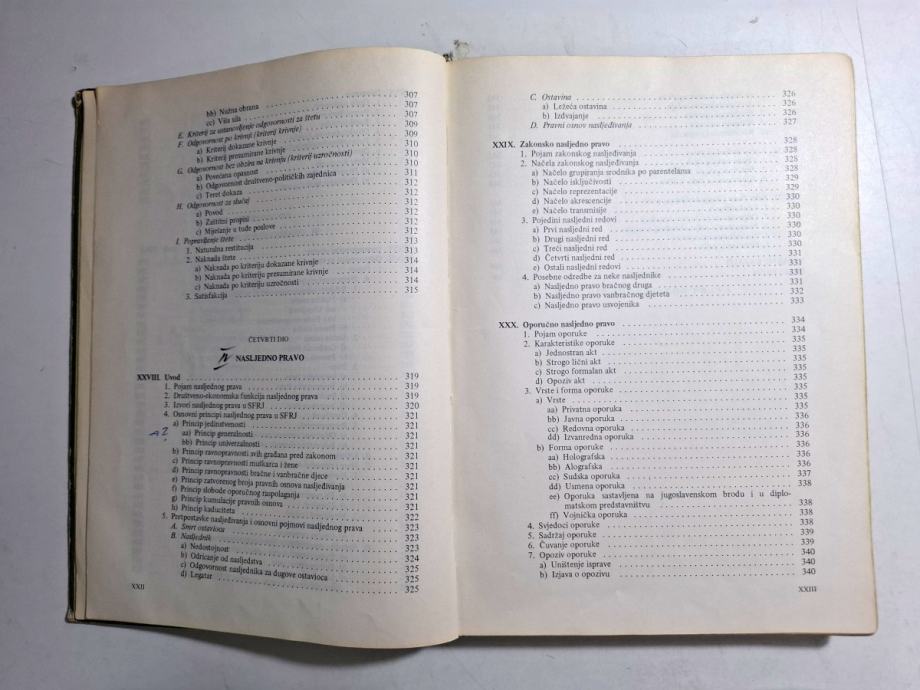 bb) Nužna obrana 307
cc) Viša sila 307
E. Kriterij za ustanovljenje odgovornosti za štetu 307
F. Odgovornost po krivnji (kriterij krivnje) 309
a) Kriterij dokazane krivnje 309
b) Kriterij presumirane krivnje 310
G. Odgovornost bez obzira na krivnju (kriterij uzročnosti) 310
a) Povećana opasnost 310
b) Odgovornost društveno-političkih zajednica 311
c) Teret dokaza 312
H. Odgovornost za slučaj 312
a) Povod 312
b) Zaštitni propisi 312
c) Miješanje u tuđe poslove 312
I. Popravljanje štete 313
1. Naturalna restitucija 313
2. Naknada štete 313
a) Naknada po kriteriju dokazane krivnje 314
b) Naknada po kriteriju presumirane krivnje 314
c) Naknada po kriteriju uzročnosti 314
3. Satisfakcija 315
ČETVRTI DIO
IV NASLJEDNO PRAVO
XXVIII. Uvod 319
1. Pojam nasljednog prava 319
2. Društveno-ekonomska funkcija nasljednog prava 319
3. Izvori nasljednog prava u SFRJ 320
4. Osnovni principi nasljednog prava u SFRJ 321
a) Princip jedinstvenosti 321
aa) Princip generalnosti 321
bb) Princip univerzalnosti 321
b) Princip ravnopravnosti svih građana pred zakonom 321
c) Princip ravnopravnosti muškarca i žene 321
d) Princip ravnopravnosti bračne i vanbračne djece 321
e) Princip zatvorenog broja pravnih osnova nasljeđivanja 321
f) Princip slobode oporučnog raspolaganja 321
g) Princip kumulacije pravnih osnova 321
h) Princip kaduciteta 322
5. Pretpostavke nasljeđivanja i osnovni pojmovi nasljednog prava 323
A. Smrt ostavioca 323
B. Nasljednik 323
a) Nedostojnost 324
b) Odricanje od nasljedstva 325
c) Odgovornost nasljednika za dugove ostavioca 325
d) Legatar 325
XXII
C. Ostavina 326
a) Ležeća ostavina 326
b) Izdvajanje 326
D. Pravni osnov nasljeđivanja 327
XXIX. Zakonsko nasljedno pravo 328
1. Pojam zakonskog nasljeđivanja 328
2. Načela zakonskog nasljeđivanja 328
a) Načelo grupiranja srodnika po parentelama 328
b) Načelo isključivosti 329
c) Načelo reprezentacije 329
d) Načelo akrescencije 330
e) Načelo transmisije 330
3. Pojedini nasljedni redovi 330
a) Prvi nasljedni red 330
b) Drugi nasljedni red 330
c) Treći nasljedni red 330
d) Četvrti nasljedni red 331
e) Ostali nasljedni redovi 331
4. Posebne odredbe za neke nasljednike 331
a) Nasljedno pravo bračnog druga 331
b) Nasljedno pravo vanbračnog djeteta 332
c) Nasljedno pravo usvojenika 333
XXX. Oporučno nasljedno pravo 334
1. Pojam oporuke 334
2. Karakteristike oporuke 335
a) Jednostran akt 335
b) Strogo lični akt 335
c) Strogo formalan akt 335
d) Opoziv akt 335
3. Vrste i forma oporuke 335
a) Vrste 335
aa) Privatna oporuka 335
bb) Javna oporuka 336
cc) Redovna oporuka 336
dd) Izvanredna oporuka 336
b) Forma oporuke 336
aa) Holografska 336
bb) Alografska 336
cc) Sudska oporuka 337
dd) Usmena oporuka 338
ee) Oporuka sastavljena na jugoslavenskom brodu i u diplo-
matskom predstavništvu 338
ff) Vojnička oporuka 338
4. Svjedoci oporuke 338
5. Sadržaj oporuke 339
6. Čuvanje oporuke 339
7. Opoziv oporuke 340
a) Uništenje isprave 340
b) Izjava o opozivu 340
XXIII